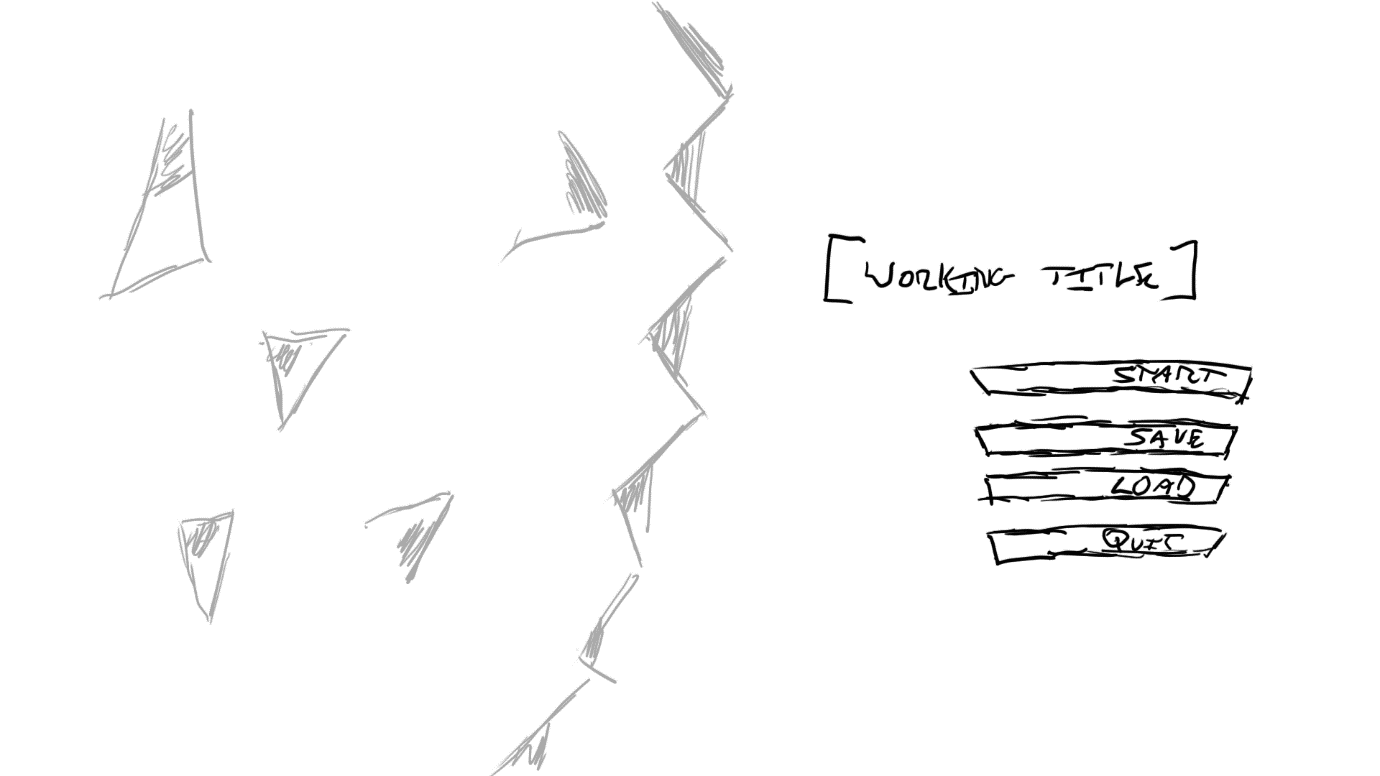 [WORKING TITLE]
START
SAVE
LOAD
QUIT